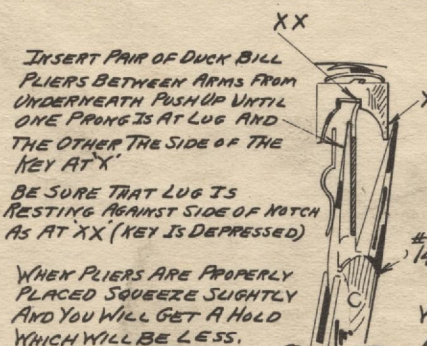 XX
INSERT PAIR OF DUCK BILL
PLIERS BETWEEN ARMS FROM
UNDERNEATH PUSH UP UNTIL
ONE PRONG IS AT LUG AND
THE OTHER THE SIDE OF THE
KEY AT 'X'
BE SURE THAT LUG IS
RESTING AGAINST SIDE OF NOTCH
AS AT 'XX' (KEY IS DEPRESSED)
WHEN PLIERS ARE PROPERLY
PLACED SQUEEZE SLIGHTLY
AND YOU WILL GET A HOLD
WHICH WILL BE LESS.
C